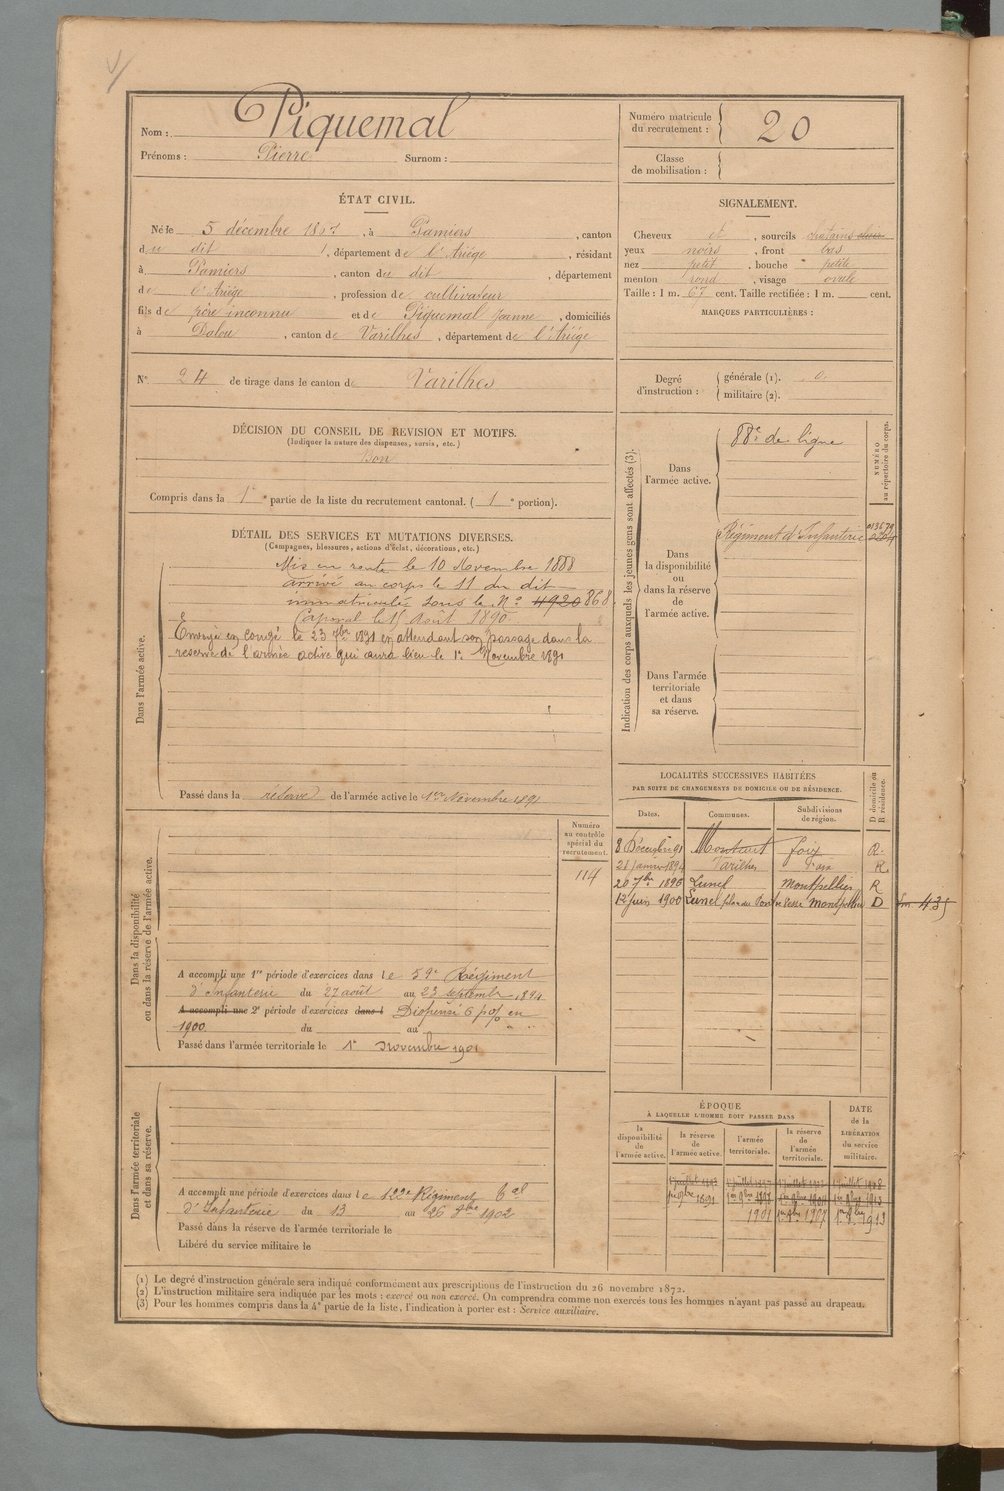 Nom : Piquemal
Prénoms : Pierre Surnom :
Numéro matricule du recrutement : 20
Classe de mobilisation :
ÉTAT CIVIL.
Né le 5 décembre 1867, à Pamiers, canton
du dit, département de l'Ariège, résidant
à Pamiers, canton du dit, département
de l'Ariège, profession de cultivateur
fils de père inconnu et de Piquemal Jeanne, domiciliés
à Dalou, canton de Varilhes, département de l'Ariège
N° 24 de tirage dans le canton de Varilhes
SIGNALEMENT.
Cheveux et, sourcils chatains clair
yeux noirs, front bas
nez petit, bouche petite
menton rond, visage ovale
Taille : 1 m. 67 cent. Taille rectifiée : 1 m. cent.
MARQUES PARTICULIÈRES :
Degré d'instruction : générale (1). 0
militaire (2).
DÉCISION DU CONSEIL DE REVISION ET MOTIFS.
(Indiquer la nature des dispenses, sursis, etc.)
Bon
Compris dans la 1e partie de la liste du recrutement cantonal. (1e portion).
DÉTAIL DES SERVICES ET MUTATIONS DIVERSES.
(Campagnes, blessures, actions d'éclat, décorations, etc.)
Dans l'armée active.
Mis en route le 10 Novembre 1888
arrivé au corps le 11 du dit
immatriculé sous le N° 4920 868
Caporal le 15 Août 1890
Envoyé en congé le 23 7bre 1891 en attendant son passage dans la
reserve de l'armée active qui aura lieu le 1er Novembre 1891
Passé dans la réserve de l'armée active le 1er Novembre 1891
Indication des corps auxquels les jeunes gens sont affectés (3).
NUMÉRO au répertoire du corps.
Dans l'armée active.
88e de ligne
Dans la disponibilité ou dans la réserve de l'armée active.
Régiment d'Infanterie
013679
Dans l'armée territoriale et dans sa réserve.
LOCALITÉS SUCCESSIVES HABITÉES
PAR SUITE DE CHANGEMENTS DE DOMICILE OU DE RÉSIDENCE.
Dates. Communes. Subdivisions de région. D domicile ou R résidence.
8 Décembre 91 Montaut foix R.
21 janvier 1894 Varilhes Foix R
20 7bre 1896 Lunel Montpellier R
12 juin 1900 Lunel Montpellier D
435
Dans la disponibilité ou dans la réserve de l'armée active.
Numéro au contrôle spécial du recrutement.
114
A accompli une 1re période d'exercices dans le 59e Régiment
d'Infanterie du 27 août au 23 septembre 1894
A accompli une 2e période d'exercices dans l Dispensé 6 p% en
1900. du au
Passé dans l'armée territoriale le 1er Novembre 1901
Dans l'armée territoriale et dans sa réserve.
A accompli une période d'exercices dans le 122e Régiment Tal
d'Infanterie du 13 au 26 8bre 1902
Passé dans la réserve de l'armée territoriale le
Libéré du service militaire le
ÉPOQUE
À LAQUELLE L'HOMME DOIT PASSER DANS
DATE de la LIBÉRATION du service militaire.
la disponibilité de l'armée active. la réserve de l'armée active. l'armée territoriale. la réserve de l'armée territoriale.
1er 9bre 1891 1er 9bre 1897
1901 1er 9bre 1907 1er 9bre 1913
(1) Le degré d'instruction générale sera indiqué conformément aux prescriptions de l'instruction du 26 novembre 1872.
(2) L'instruction militaire sera indiquée par les mots : exercé ou non exercé. On comprendra comme non exercés tous les hommes n'ayant pas passé au drapeau.
(3) Pour les hommes compris dans la 4e partie de la liste, l'indication à porter est : Service auxiliaire.